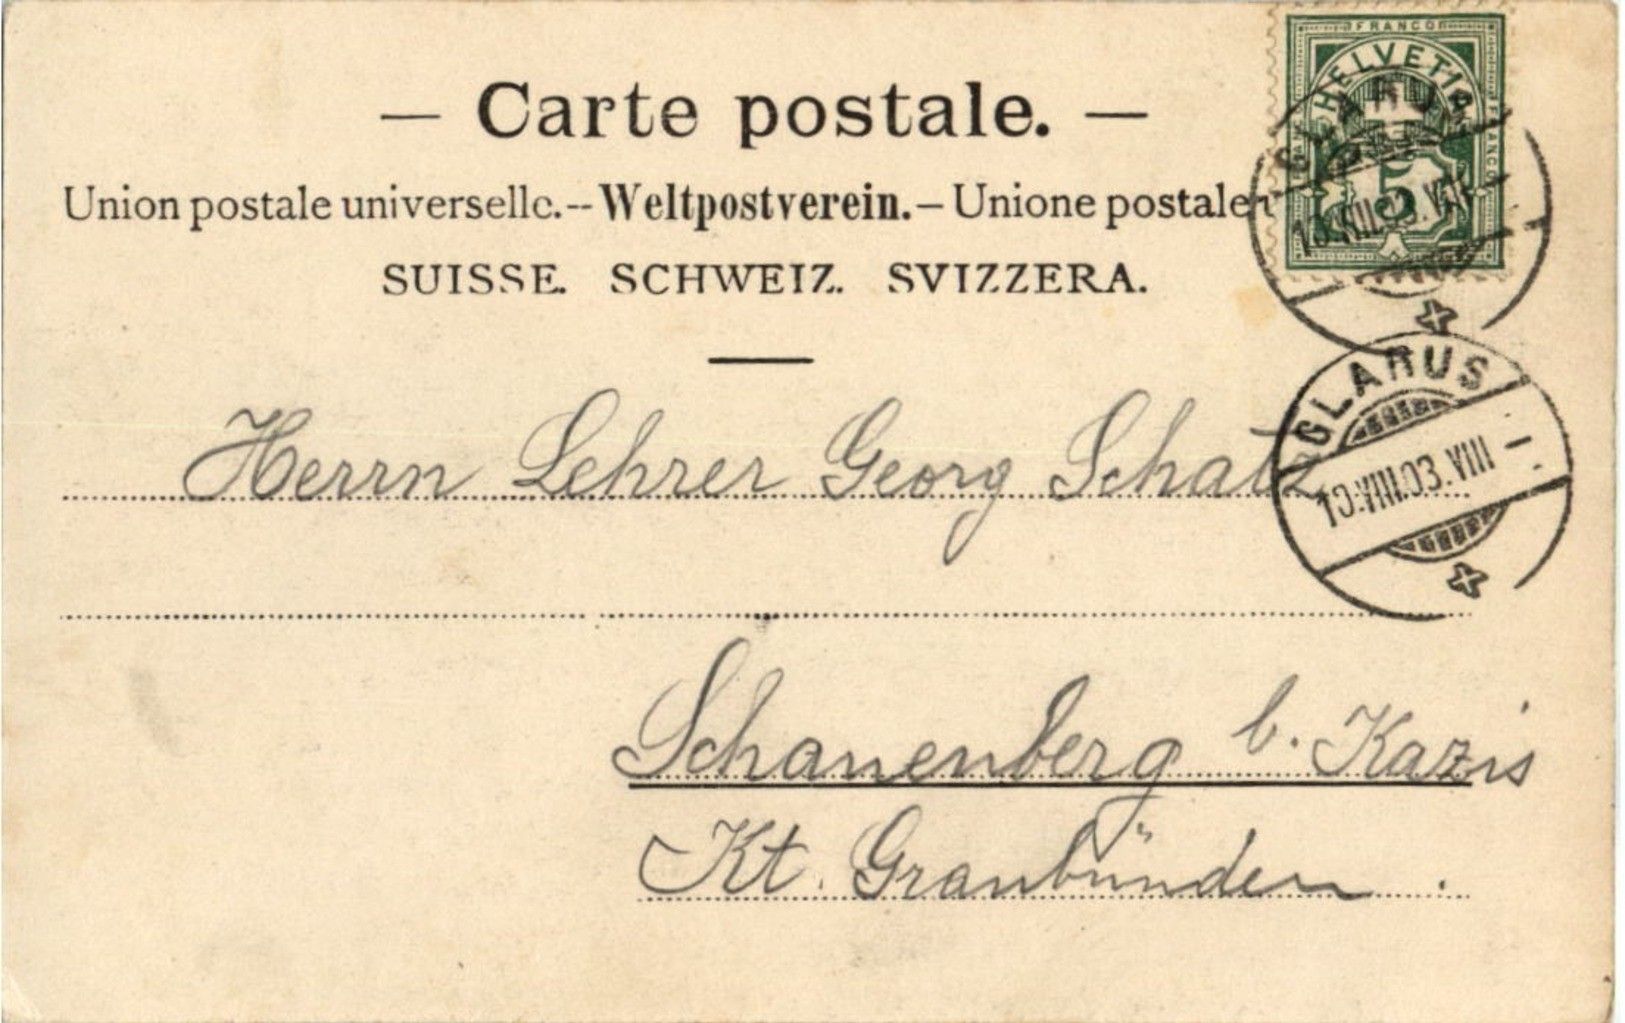 FRANCO
HELVETIA
FRANCO
5
— Carte postale. —
Union postale universelle.-- Weltpostverein.– Unione postale
SUISSE. SCHWEIZ. SVIZZERA.
GLARUS
10.VIII.03.VIII
GLARUS
10.VIII.03.VIII –
Herrn Lehrer Georg Schatz
Schauenberg b. Kazis
Kt. Graubünden.